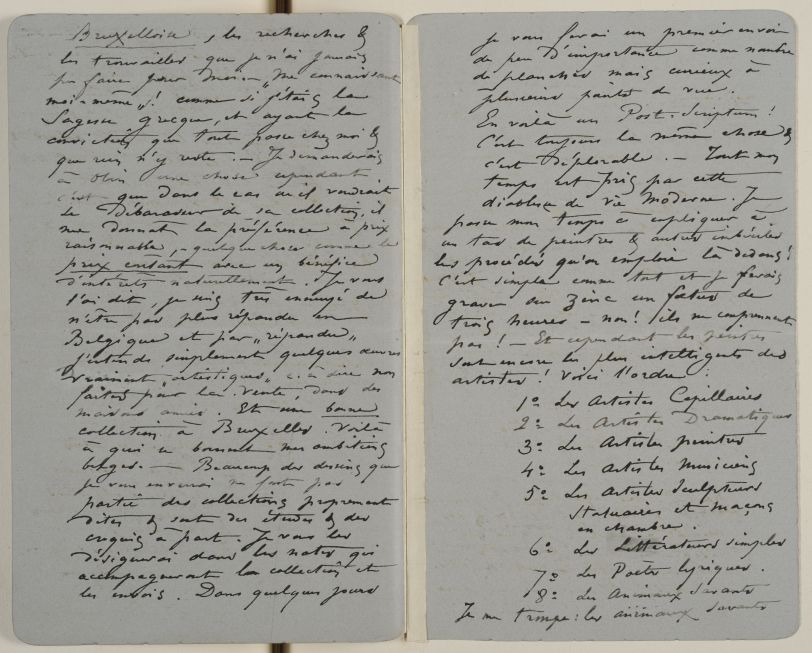 Bruxelloise, les recherches &
les trouvailles que je n'ai jamais
pu faire pour moi- „me connaissant
moi-même„! comme si j'étais la
Sagesse grecque, et ayant la
conviction que tout passe chez moi &
que rien n'y reste. — Je demanderais
à Olin une chose cependant
c'est que dans le cas où il voudrait
se débarasser de sa collection, il
me donnat la préférence à prix
raisonnable, - quelque chose comme le
prix coutant avec un bénéfice
d'intérêts naturellement. Je vous
l'ai dit, je suis très ennuyé de
n'être pas plus répandu en
Belgique et par „répandu„
j'entends simplement quelques œuvres
vraiment „artistiques„ c. à dire non
faites pour la vente, dans des
maisons amies. Et une bonne
collection à Bruxelles. Voilà
à quoi se bornent mes ambitions
belges. — Beaucoup des dessins que
je vous enverrai ne font pas
partie des collections proprement
dites & sont des études & des
croquis à part. Je vous les
désignerai dans les notes qui
accompagneront la collection et
les envois. Dans quelques jours
je vous ferai un premier envoi
de peu d'importance comme nombre
de planches mais curieux à
plusieurs points de vue.
En voilà un Post-Scriptum!
C'est toujours la même chose &
c'est déplorable. — Tout mon
temps est pris par cette
diablesse de vie moderne. Je
passe mon temps à expliquer à
un tas de peintres & autres imbéciles
les procédés qu'on emploie là dedans!
C'est simple comme tout et je ferais
graver sur zinc un fœtus de
trois heures - non! ils ne comprennent
pas! — Et cependant les peintres
sont encore les plus intelligents des
artistes! Voici l'ordre:
1º Les Artistes Capillaires
2º Les Artistes Dramatiques
3º Les Artistes peintres
4º Les Artistes Musiciens
5º Les Artistes Sculpteurs
Statuaires et Maçons
en chambre.
6º Les Littérateurs simples
7º Les Poètes lyriques.
8º Les Animaux Savants
Je me trompe: les animaux savants